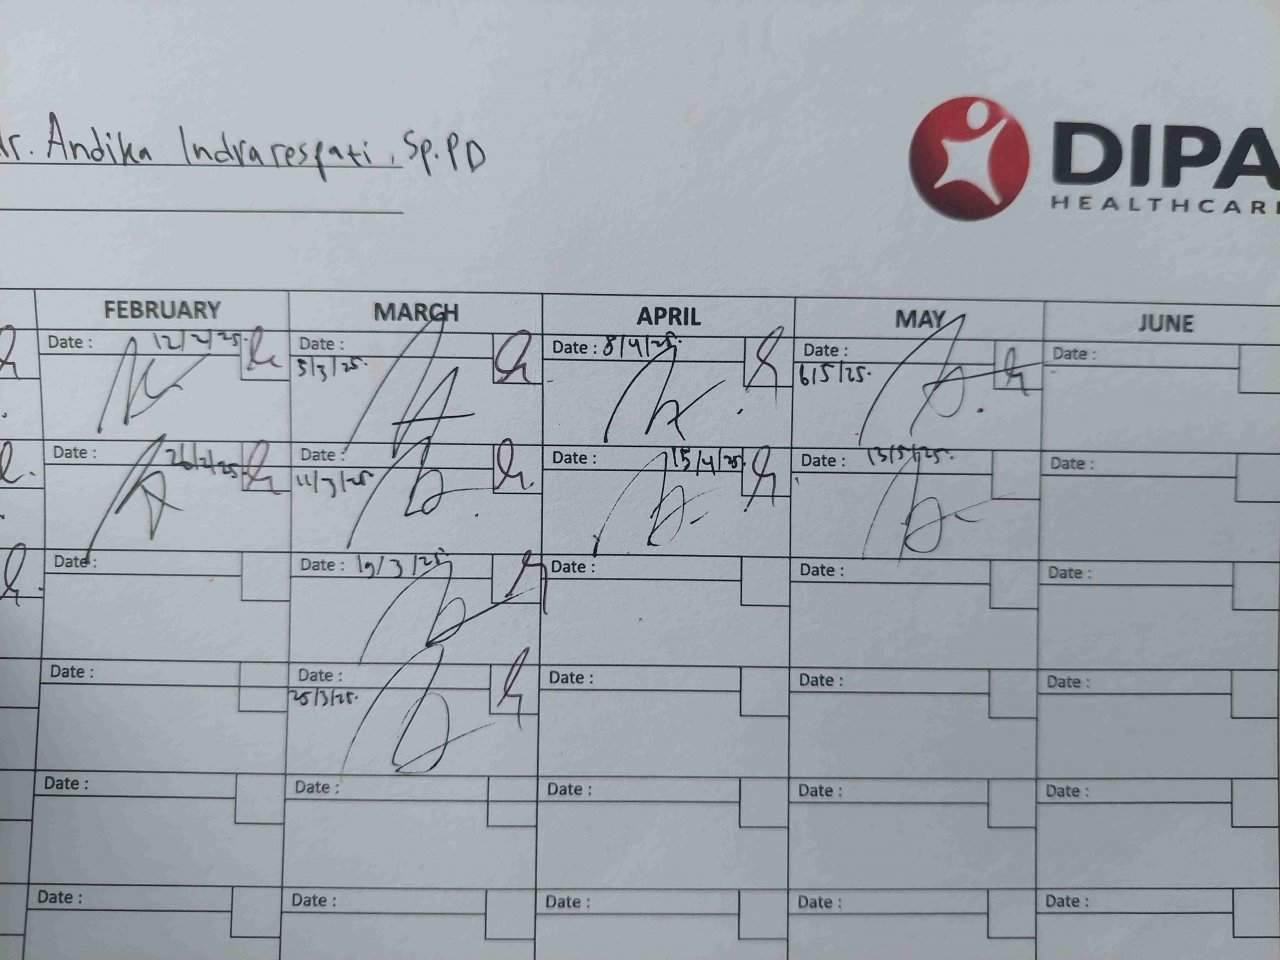 dr. Andika Indrarespati, Sp.PD
DIPA
HEALTHCARE
FEBRUARY MARCH APRIL MAY JUNE
Date : 12/2/25. Date : 5/3/25. Date : 8/4/25. Date : 6/5/25. Date :
Date : 26/2/25. Date : 11/3/25. Date : 15/4/25. Date : 13/5/25. Date :
Date : Date : 19/3/25. Date : Date : Date :
Date : Date : 25/3/25. Date : Date : Date :
Date : Date : Date : Date : Date :
Date : Date : Date : Date : Date :